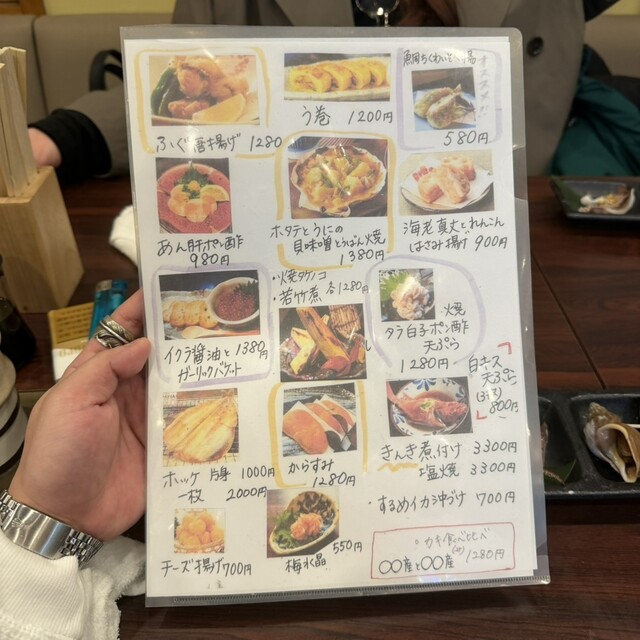 ふぐ唐揚げ 1280
う巻 1200円
オススメ!!
580円
あん肝ポン酢
980円
ホタテとうにの
貝味噌とうばん焼
1380円
海老真丈とれんこん
はさみ揚げ 900円
・焼タケノコ
・若竹煮 各1280円
イクラ醤油と 1380円
ガーリックバケット
焼
タラ白子ポン酢
天ぷら
1280円
白キス
天ぷら
(3尾)
800円
ホッケ 片身 1000円
一枚 2000円
からすみ
1280円
きんき煮付け 3300円
塩焼 3300円
・するめイカ沖づけ 700円
チーズ揚げ700円
梅水晶 550円
・カキ食べ比べ
1280円
〇〇産と〇〇産